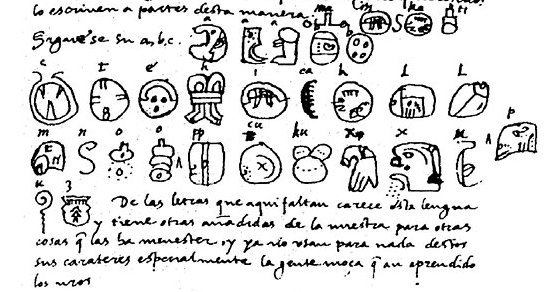 lo escriven a partes desta manera.
ma i n ka ti
Siguese su a, b, c.
a a a b b
c t e h i ca k l l
p
m n o o pp cu ku x x u
u z
De las letras que aqui faltan carece esta lengua
y tiene otras añadidas de la nuestra para otras
cosas q̃ las ha menester, y ya nó usan para nada destos
sus carateres especialmente la gente moça q̃ an aprendido
los nros